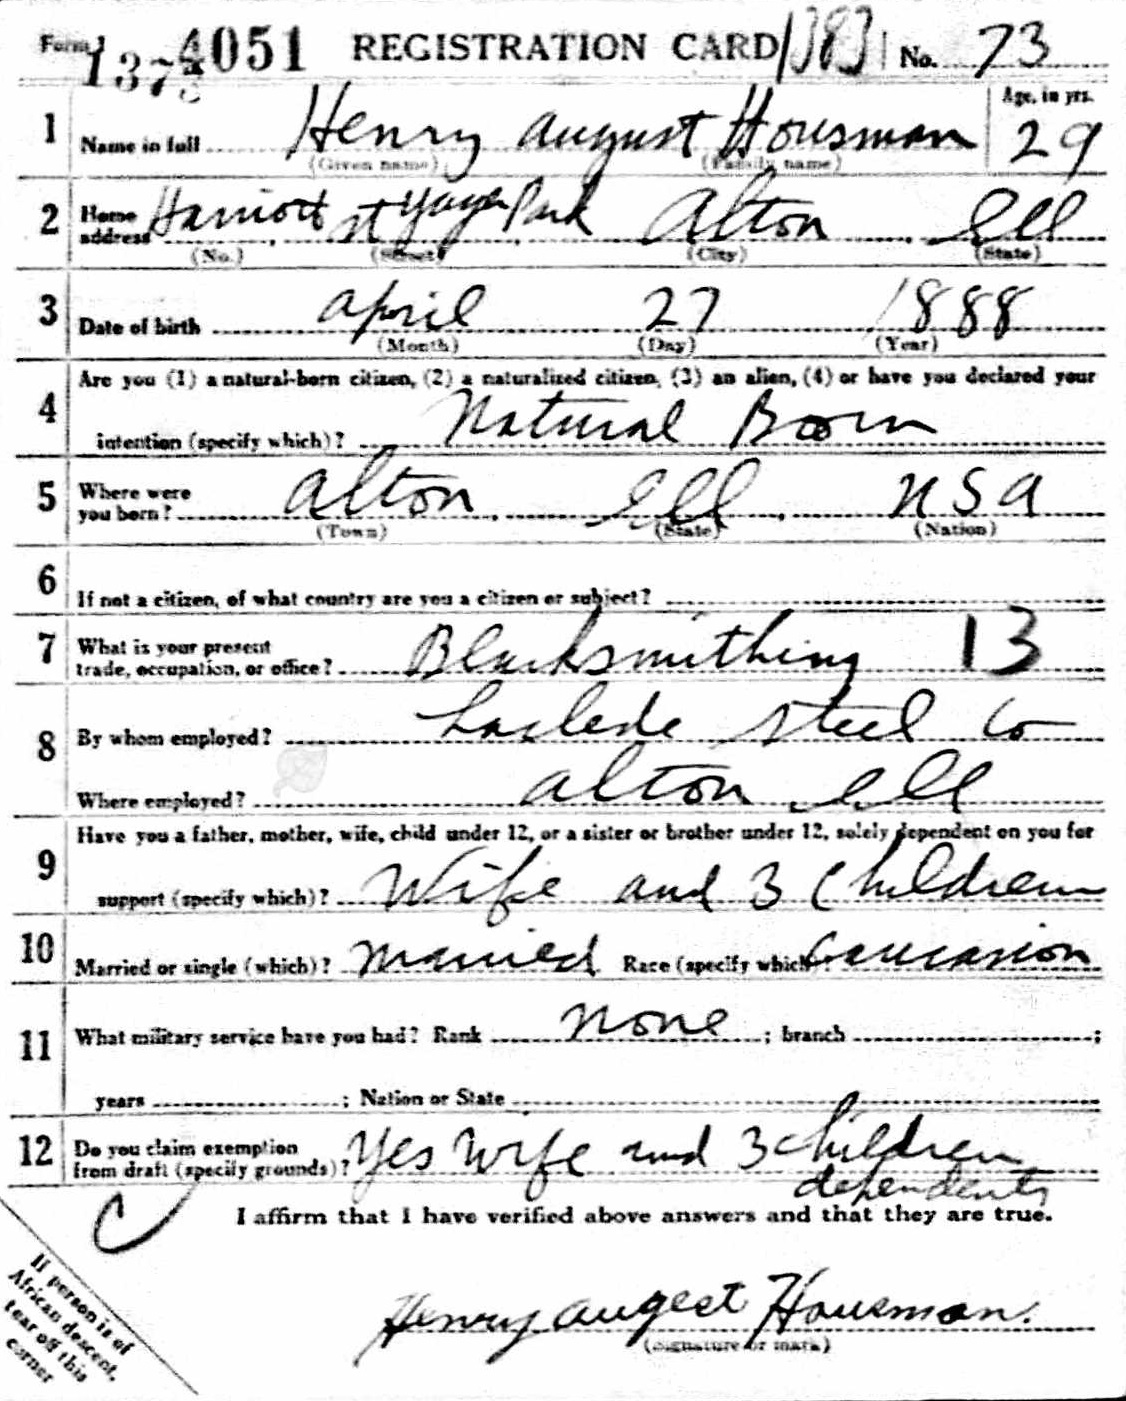 Form 1 4051 REGISTRATION CARD No. 73
137
1 Name in full Henry August Housman Age, in yrs. 29
(Given name) (Family name)
2 Home address Harriott st Park Alton Ill
(No.) (Street) (City) (State)
3 Date of birth April 27 1888
(Month) (Day) (Year)
Are you (1) a natural-born citizen, (2) a naturalized citizen, (3) an alien, (4) or have you declared your
4 intention (specify which)? Natural Boorn
5 Where were you born? Alton Ill USA
(Town) (State) (Nation)
6 If not a citizen, of what country are you a citizen or subject?
7 What is your present trade, occupation, or office? Blacksmithing 13
8 By whom employed? Laclede Steel Co
Where employed? Alton Ill
Have you a father, mother, wife, child under 12, or a sister or brother under 12, solely dependent on you for
9 support (specify which)? Wife and 3 Children
10 Married or single (which)? Married Race (specify which)? Caucasion
11 What military service have you had? Rank None ; branch ;
years ; Nation or State
12 Do you claim exemption from draft (specify grounds)? Yes Wife and 3 children
dependents
I affirm that I have verified above answers and that they are true.
If person is of
African descent,
tear off this
corner
Henry Augest Housman.
(Signature or mark)